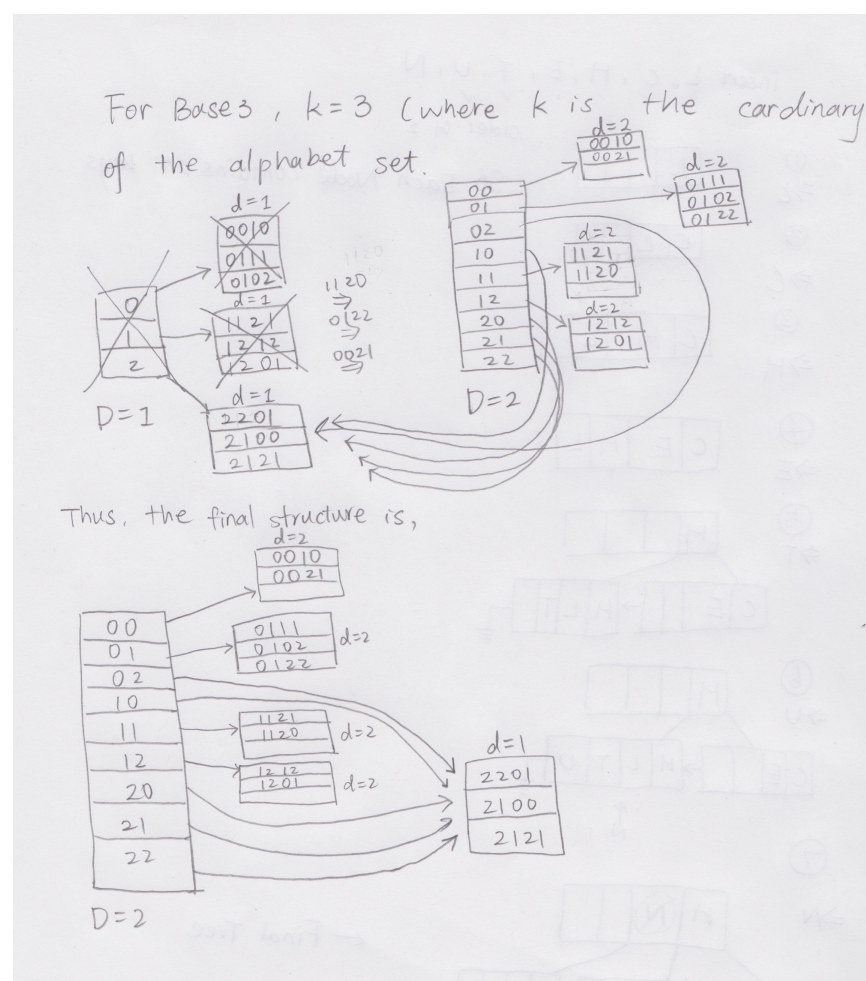 For Base3, k=3 (where k is the cardinary
of the alphabet set.
d=1
0010
0111
0102
0
1
2
D=1
d=1
1121
1212
1201
d=1
2201
2100
2121
1120
⇒
0122
⇒
0021
⇒
00
01
02
10
11
12
20
21
22
D=2
d=2
0010
0021
d=2
0111
0102
0122
d=2
1121
1120
d=2
1212
1201
Thus, the final structure is,
00
01
02
10
11
12
20
21
22
D=2
d=2
0010
0021
0111
0102
0122
d=2
1121
1120
d=2
1212
1201
d=2
d=1
2201
2100
2121